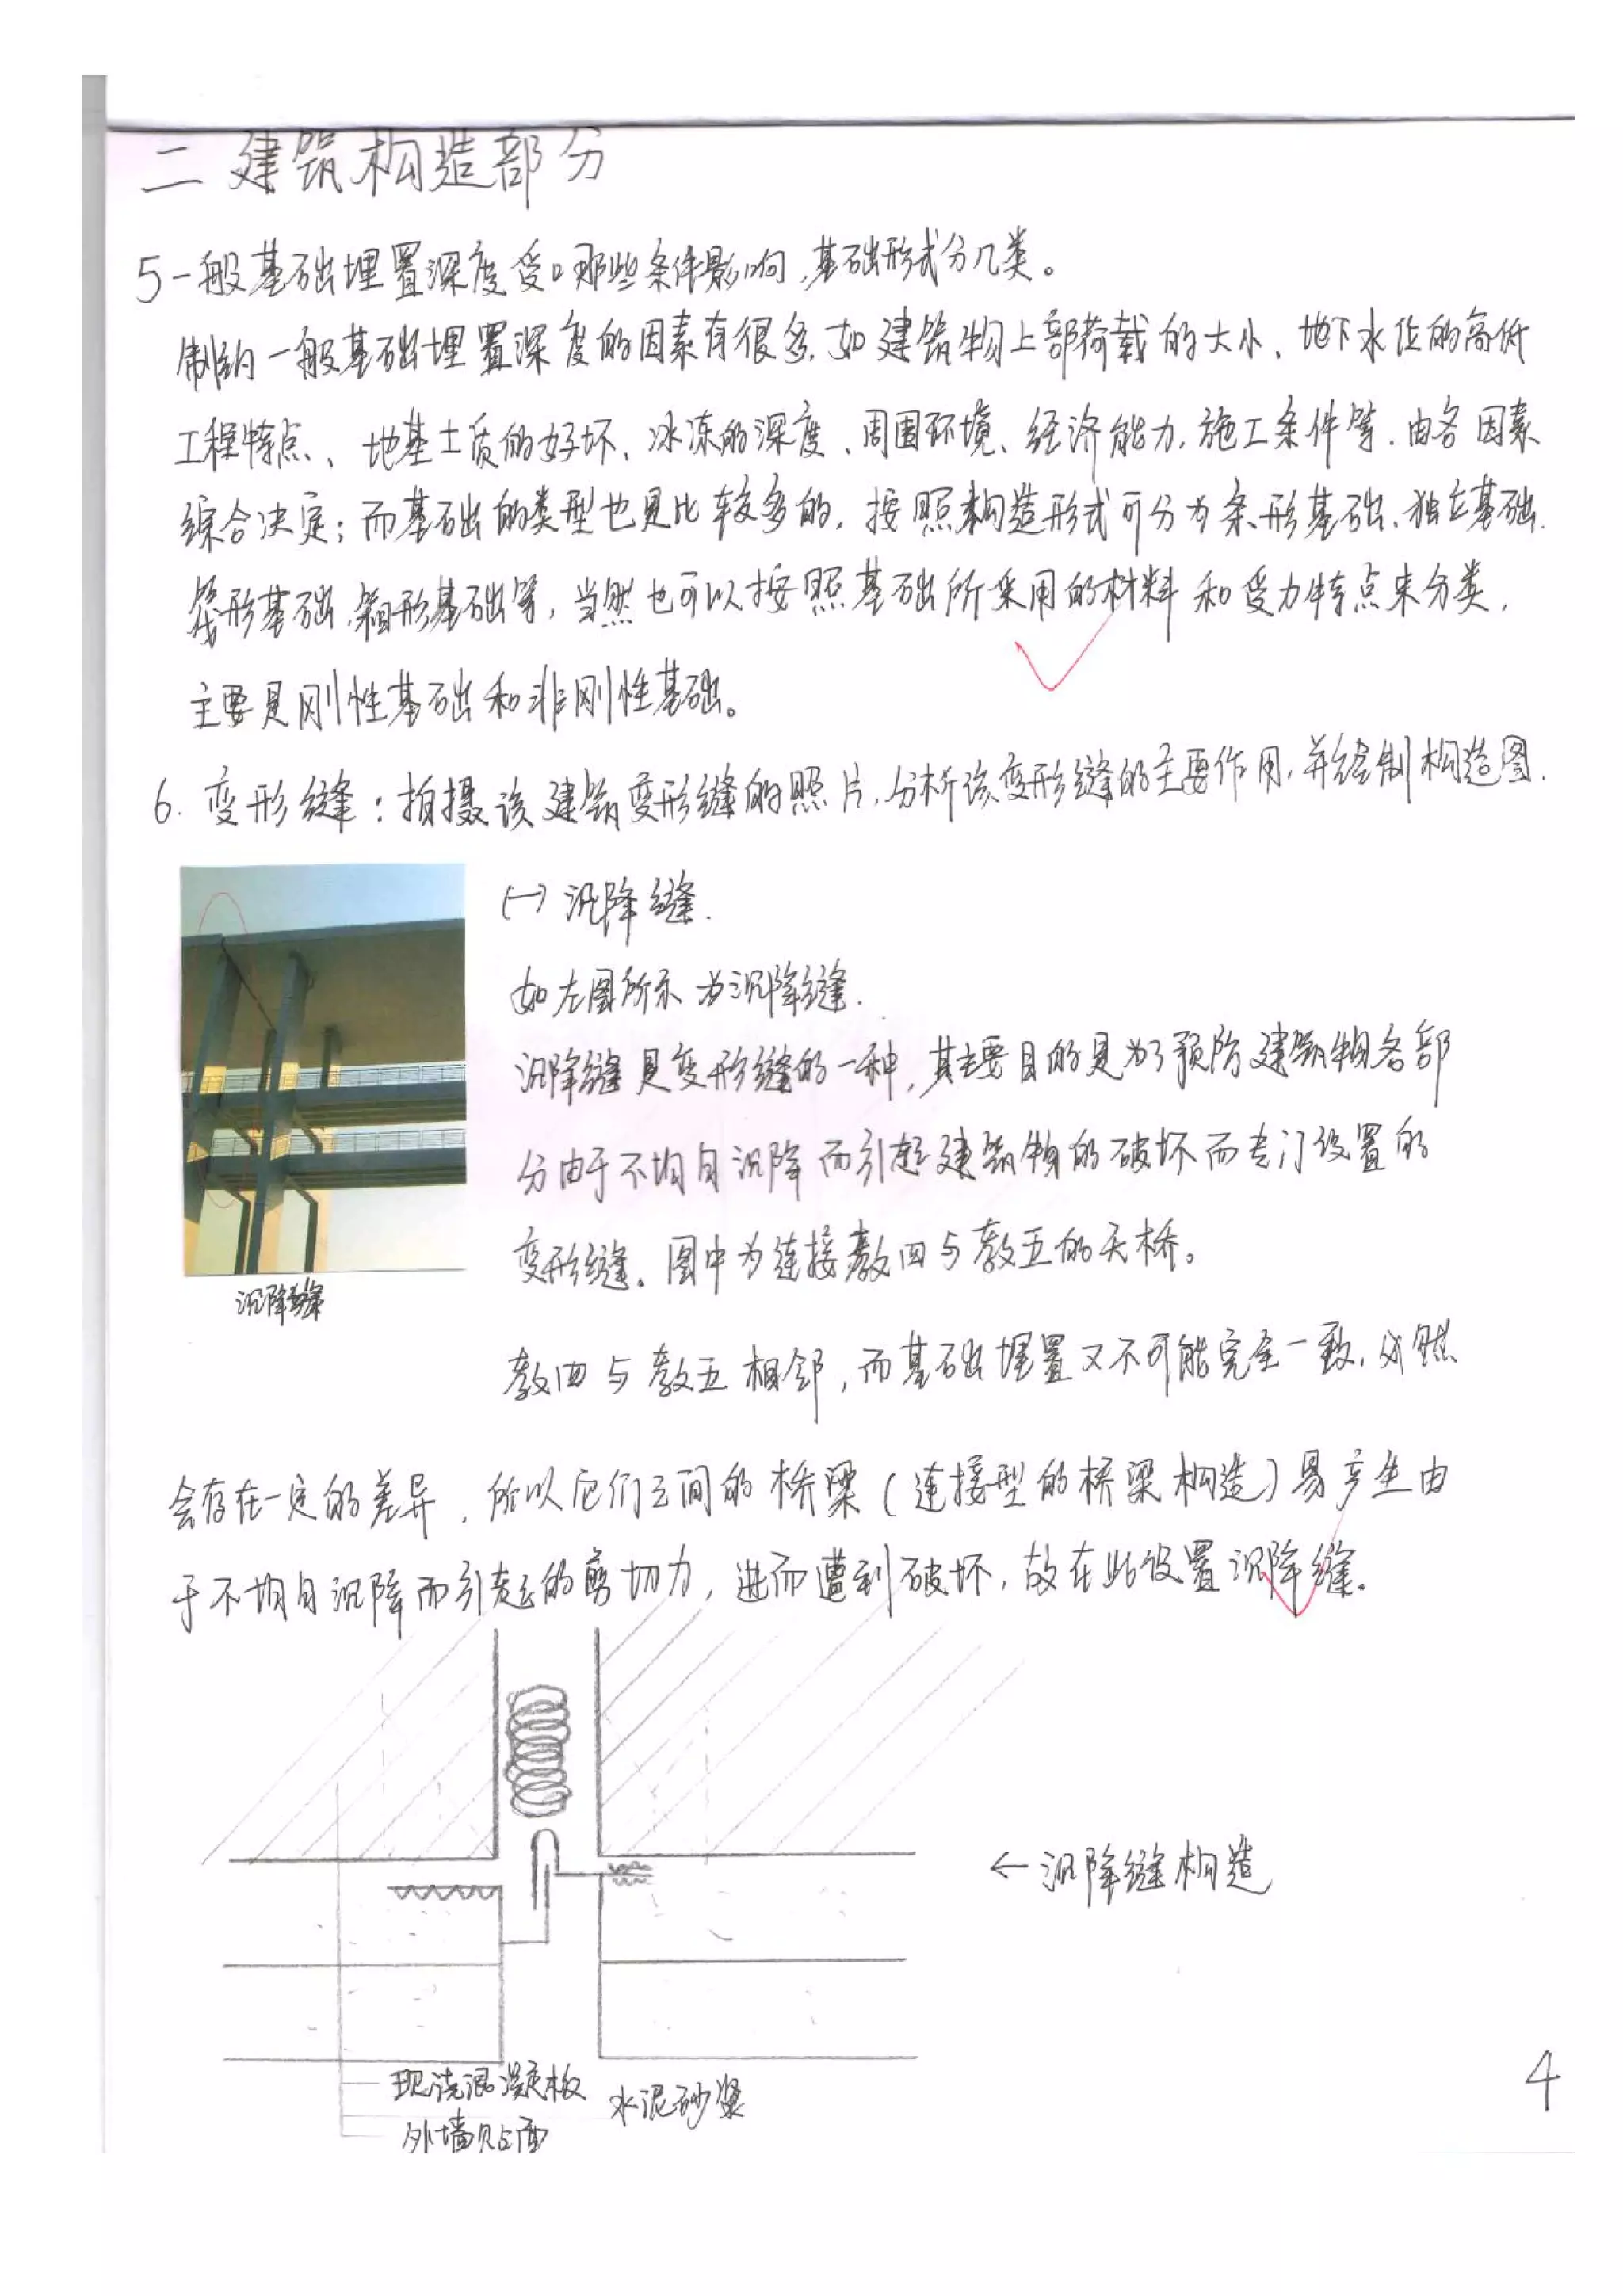 二 建筑构造部分
5 一般基础埋置深度受哪些条件影响，基础形式分几类。
制约一般基础埋置深度的因素有很多，如建筑物上部荷载的大小、地下水位的高低
工程特点、地基土质的好坏、冰冻的深度、周围环境、经济能力，施工条件等，由各因素
综合决定；而基础的类型也是比较多的，按照构造形式可分为条形基础、独立基础.
筏形基础，箱形基础等，当然也可以按照基础所采用的材料和受力特点来分类，
主要是刚性基础和非刚性基础。
6. 变形缝：拍摄该建筑变形缝的照片，分析该变形缝的主要作用，并绘制构造图.
(一) 沉降缝.
如左图所示为沉降缝.
沉降缝是变形缝的一种，其主要目的是为了预防建筑物各部
分由于不均匀沉降而引起建筑物的破坏而专门设置的
变形缝。图中为连接教四与教五的天桥。
沉降缝
教四与教五相邻，而基础埋置又不可能完全一致，必然
会存在一定的差异，所以它们之间的桥梁（连接型的桥梁构造）易产生由
于不均匀沉降而引起的剪切力，进而遭到破坏，故在此设置沉降缝。
←沉降缝构造
现浇混凝板
水泥砂浆
外墙贴面
4